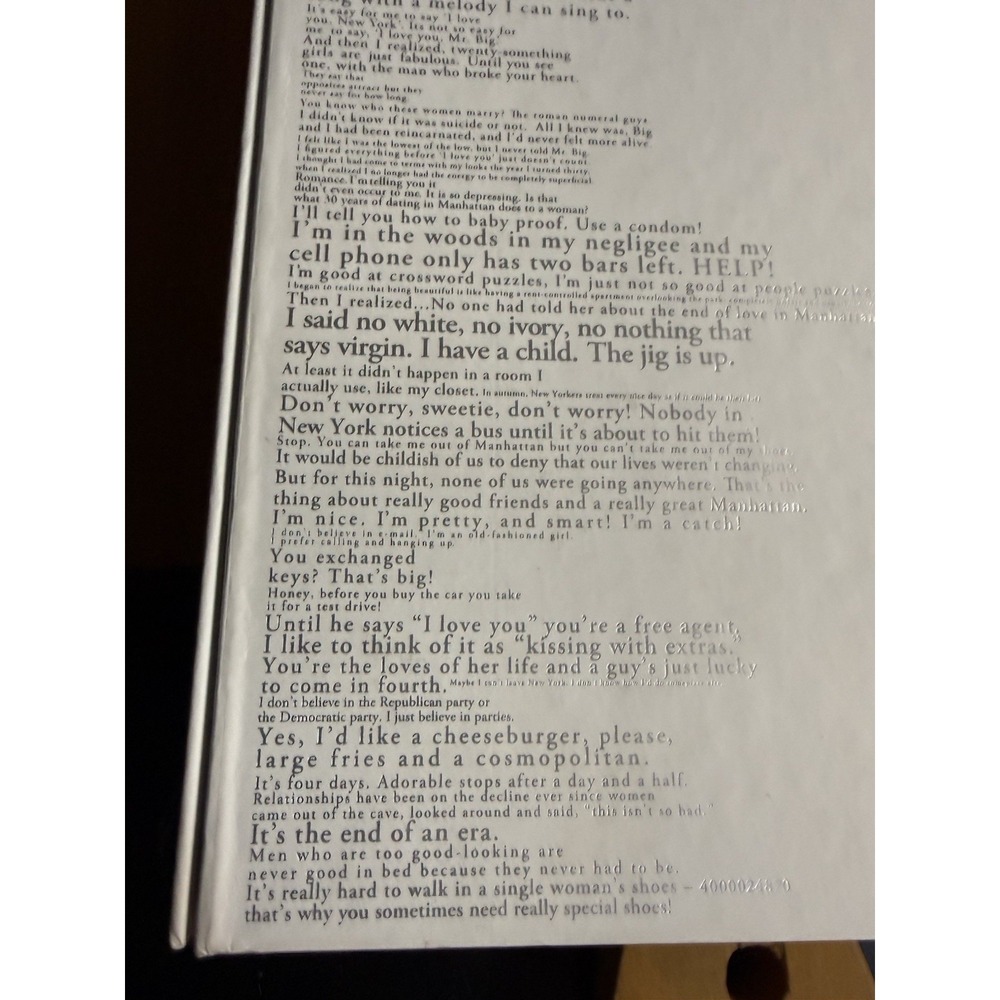 with a melody I can sing to.
It's easy for me to say 'I love
you, New York'. Its not so easy for
me to say, 'I love you, Mr. Big.'
And then I realized, twenty-something
girls are just fabulous. Until you see
one, with the man who broke your heart.
They say that
opposites attract but they
never say for how long.
You know who these women marry? The roman numeral guys
I didn't know if it was suicide or not. All I knew was, Big
and I had been reincarnated, and I'd never felt more alive.
I felt like I was the lowest of the low, but I never told Mr. Big.
I figured everything before 'I love you' just doesn't count.
I thought I had come to terms with my looks the year I turned thirty,
when I realized I no longer had the energy to be completely superficial.
Romance. I'm telling you it
didn't even occur to me. It is so depressing. Is that
what 30 years of dating in Manhattan does to a woman?
I'll tell you how to baby proof. Use a condom!
I'm in the woods in my negligee and my
cell phone only has two bars left. HELP!
I'm good at crossword puzzles, I'm just not so good at people puzzles
I began to realize that being beautiful is like having a rent-controlled apartment overlooking the park
Then I realized...No one had told her about the end of love in Manhattan
I said no white, no ivory, no nothing that
says virgin. I have a child. The jig is up.
At least it didn't happen in a room I
actually use, like my closet. In autumn, New Yorkers treat every nice day as if it could be their last
Don't worry, sweetie, don't worry! Nobody in
New York notices a bus until it's about to hit them!
Stop. You can take me out of Manhattan but you can't take me out of my shoes.
It would be childish of us to deny that our lives weren't changing.
But for this night, none of us were going anywhere. That's the
thing about really good friends and a really great Manhattan.
I'm nice. I'm pretty, and smart! I'm a catch!
I don't believe in e-mail. I'm an old-fashioned girl.
I prefer calling and hanging up.
You exchanged
keys? That's big!
Honey, before you buy the car you take
it for a test drive!
Until he says “I love you” you're a free agent.
I like to think of it as “kissing with extras.”
You're the loves of her life and a guy's just lucky
to come in fourth. Maybe I can't leave New York. I don't know how I'd do
I don't believe in the Republican party or
the Democratic party. I just believe in parties.
Yes, I'd like a cheeseburger, please,
large fries and a cosmopolitan.
It's four days. Adorable stops after a day and a half.
Relationships have been on the decline ever since women
came out of the cave, looked around and said, "this isn't so bad."
It's the end of an era.
Men who are too good-looking are
never good in bed because they never had to be.
It's really hard to walk in a single woman's shoes –
that's why you sometimes need really special shoes!